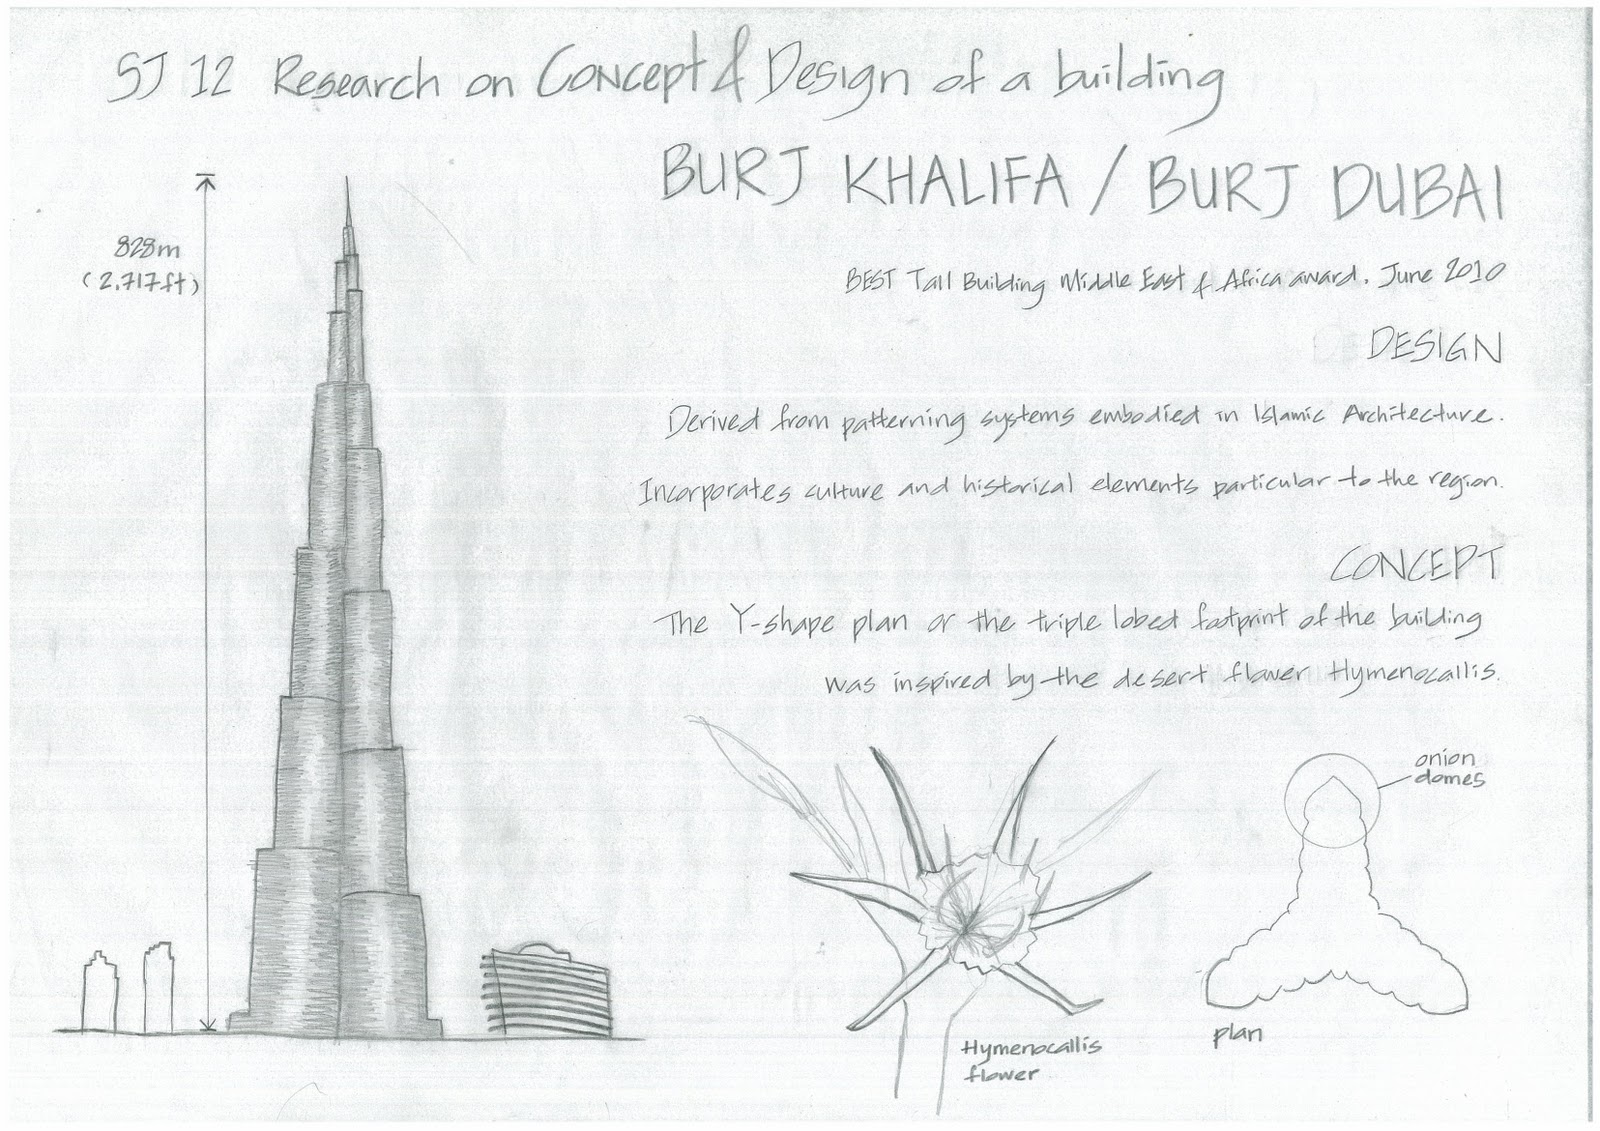 SJ 12 Research on Concept & Design of a building
BURJ KHALIFA / BURJ DUBAI
828m
(2,717ft)
BEST Tall Building Middle East & Africa award. June 2010
DESIGN
Derived from patterning systems embodied in Islamic Architecture.
Incorporates culture and historical elements particular to the region.
CONCEPT
The Y-shape plan or the triple lobed footprint of the building
was inspired by the desert flower Hymenocallis.
onion
domes
plan
Hymenocallis
flower